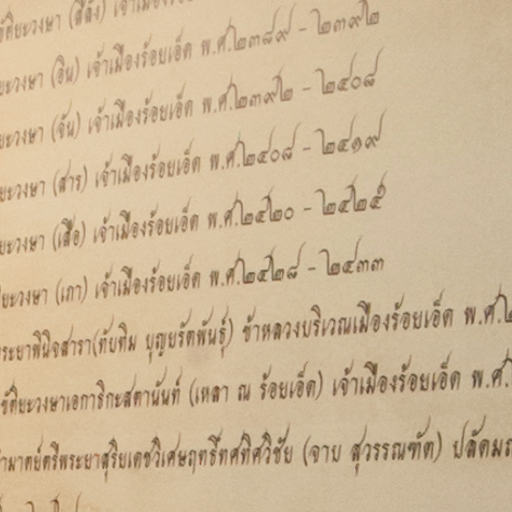 ขัติยะวงษา (สีลัง) เจ้าเมืองร้อยเอ็ด
ยะวงษา (อิน) เจ้าเมืองร้อยเอ็ด พ.ศ.๒๓๘๙ - ๒๓๙๒
ยะวงษา (จัน) เจ้าเมืองร้อยเอ็ด พ.ศ.๒๓๙๒ - ๒๔๐๘
ยะวงษา (สาร) เจ้าเมืองร้อยเอ็ด พ.ศ.๒๔๐๘ - ๒๔๑๙
ยะวงษา (เสือ) เจ้าเมืองร้อยเอ็ด พ.ศ.๒๔๒๐ - ๒๔๒๕
ยะวงษา (เภา) เจ้าเมืองร้อยเอ็ด พ.ศ.๒๔๒๘ - ๒๔๓๓
ระยาพินิจสารา(ทับทิม บุญยรัตพันธุ์) ข้าหลวงบริเวณเมืองร้อยเอ็ด พ.ศ.๒
ขัติยะวงษาเอการิกะสตานันท์ (เหลา ณ ร้อยเอ็ด) เจ้าเมืองร้อยเอ็ด พ.ศ.
อำมาตย์ตรีพระยาสุริยเดชวิเศษฤทธิ์ทศทิศวิชัย (จาบ สุวรรณทัต) ปลัดมณ